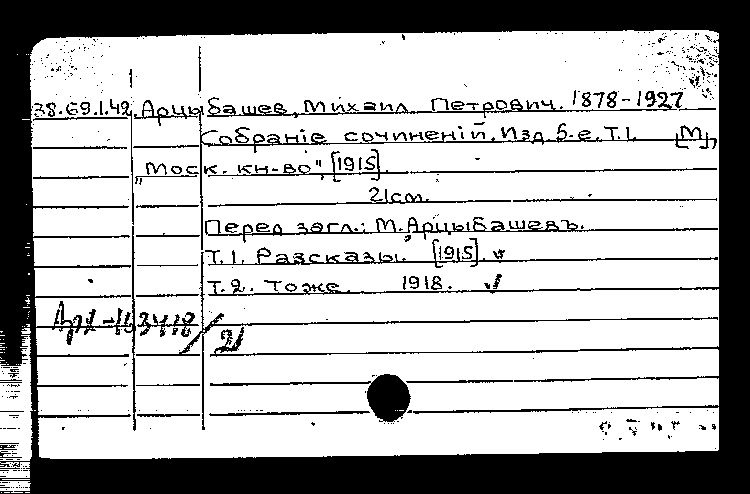 38.69.1.42. Арцыбашев, Михаил Петрович. 1878-1927
Собранiе сочиненiй. Изд. 5-е. Т.1. [М],
„Моск. кн-во", [1915].
21см.
Перед загл.: М. Арцыбашевъ.
Т.1. Разсказы. [1915]. v
Т.2. Тоже. 1918. v
163418/21